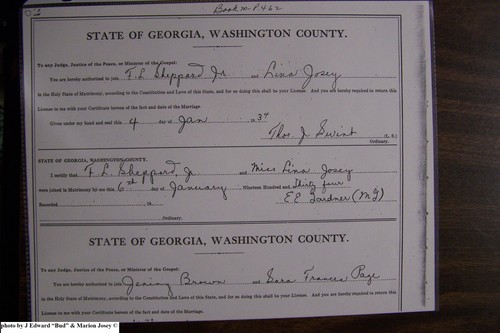 Book M-P462
STATE OF GEORGIA, WASHINGTON COUNTY.
To any Judge, Justice of the Peace, or Minister of the Gospel:
You are hereby authorized to join F. L. Sheppard Jr and Lina Josey
in the Holy State of Matrimony, according to the Constitution and Laws of this State, and for so doing this shall be your License. And you are hereby required to return this
License to me with your Certificate hereon of the fact and date of the Marriage.
Given under my hand and seal this 4 day of Jan 1934
Thos. J. Swint (L. S.)
Ordinary.
STATE OF GEORGIA, WASHINGTON COUNTY.
I certify that F. L. Sheppard, Jr and Miss Lina Josey
were joined in Matrimony by me this 6th day of January, Nineteen Hundred and Thirty four
Recorded 19 E E Gardner (M G)
Ordinary.
STATE OF GEORGIA, WASHINGTON COUNTY.
To any Judge, Justice of the Peace, or Minister of the Gospel:
You are hereby authorized to join Brown and Sara Frances Page
in the Holy State of Matrimony, according to the Constitution and Laws of this State, and for so doing this shall be your License. And you are hereby required to return this
License to me with your Certificate hereon of the fact and date of the Marriage.
photo by J Edward "Bud" & Marion Josey ©